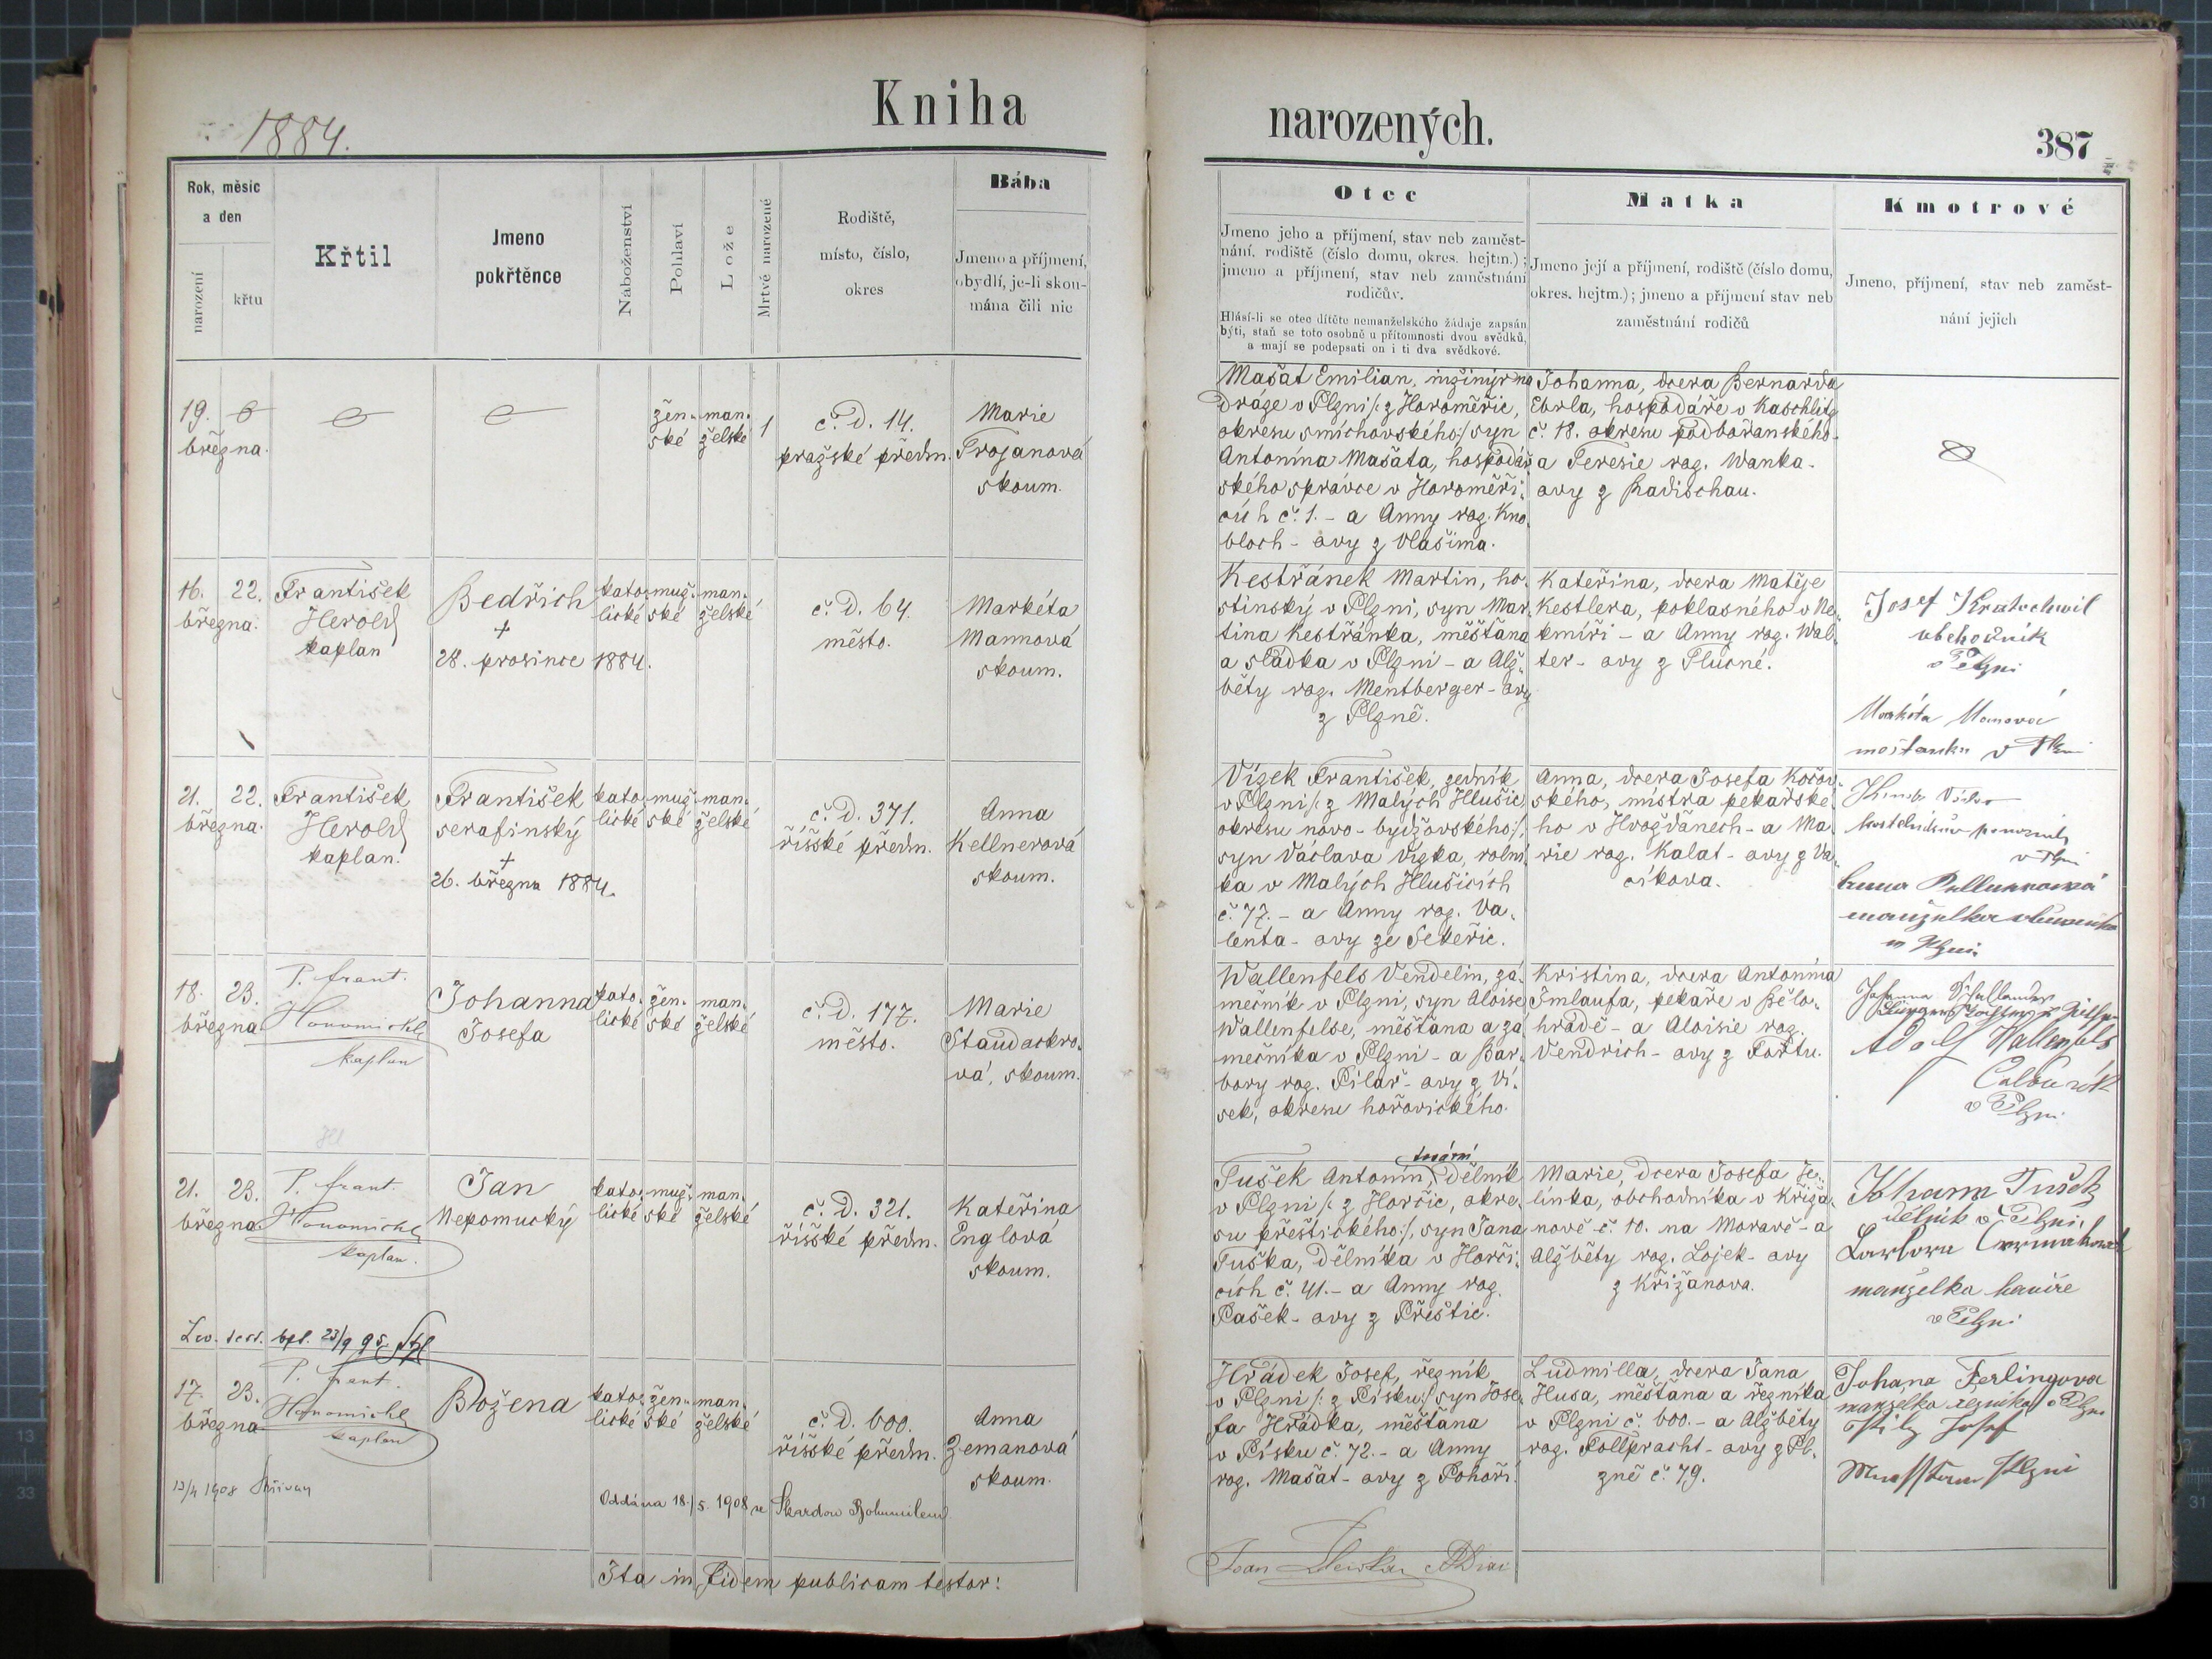 1884.
Kniha
narozených.
387
Rok, měsíc
a den
narození
křtu
Křtil
Jmeno
pokřtěnce
Náboženství
Pohlaví
Lože
Mrtvé narozené
Rodiště,
místo, číslo,
okres
Bába
Jmeno a příjmení,
obydlí, je-li skou-
mána čili nic
Otec
Jmeno jeho a příjmení, stav neb zaměst-
nání, rodiště (číslo domu, okres. hejtm.);
jmeno a příjmení, stav neb zaměstnání
rodičův.
Hlásí-li se otec dítěte nemanželského žádaje zapsán
býti, staň se toto osobně u přítomnosti dvou svědků,
a mají se podepsati on i ti dva svědkové.
Matka
Jmeno její a příjmení, rodiště (číslo domu,
okres. hejtm.); jmeno a příjmení stav neb
zaměstnání rodičů
Kmotrové
Jmeno, příjmení, stav neb zaměst-
nání jejich
19.
března.
žen-
ské
man-
želské
1
č. d. 14.
pražské předm.
Marie
Trojanová
skoum.
Mašat Emilian, inžinýr na
dráze v Plzni /: z Horoměřic,
okresu smíchovského :/ syn
Antonína Mašata, hospodář-
ského správce v Horoměři-
cích č. 1. - a Anny roz. Kno-
bloch - ovy z Vlašima.
Johanna, dcera Bernarda
Eberla, hospodáře v Kaschlitz
č. 18. okresu podbořanského
a Teresie roz. Wanka-
ovy z Radischau.
16. 22.
března.
František
Herold
kaplan
Bedřich
+
28. prosince 1884.
kato-
lické
muž-
ské
man-
želské
č. d. 64.
město.
Markéta
Mannová
skoum.
Kestřánek Martin, ho-
stinský v Plzni, syn Mar-
tina Kestřánka, měšťana
a sládka v Plzni - a Alž-
běty roz. Mentberger - ovy
z Plzně.
Kateřina, dcera Matěje
Kestlera, poklasného v Ne-
kmíři - a Anny roz. Wal-
ter - ovy z Plucné.
Josef Kratochwil
obchodník
v Plzni
Markéta Manová
mešťanka v Plzni
21. 22.
března.
František
Herold
kaplan.
František
serafinský
+
26. března 1884.
kato-
lické
muž-
ské
man-
želské
č. d. 371.
říšské předm.
Anna
Kellnerová
skoum.
Vízek František, zedník
v Plzni /: z Malých Hlušic
okresu novo-bydžovského :/,
syn Václava Vízka, rolní-
ka v Malých Hlušicích
č. 77. - a Anny roz. Va-
lenta - ovy ze Sekeřic.
Anna, dcera Josefa Kočov-
ského, mistra pekařské-
ho v Hvožďanech - a Ma-
rie roz. Kalat - ovy z Va-
cíkova.
v Plzni
Anna
manželka
v Plzni
18. 23.
března
P. frant.
Honomichl
kaplan
Johanna
Josefa
kato-
lické
žen-
ské
man-
želské
č. d. 177.
město.
Marie
Staudackro-
vá, skoum.
Wallenfels Vendelin, zá-
mečník v Plzni, syn Aloise
Wallenfelse, měšťana a zá-
mečníka v Plzni - a Bar-
bory roz. Pilař - ovy z Vi-
sek, okresu hořovického.
Kristina, dcera Antonína
Imlaufa, pekaře v Bělo-
hrádě - a Aloisie roz.
Vendrich - ovy z Fořtu.
Johanna
Adolf Wallenfels
v Plzni
21. 23.
března
P. frant.
Honomichl
kaplan.
Jan
Nepomucký
kato-
lické
muž-
ské
man-
želské
č. d. 321.
říšské předm.
Kateřina
Englová
skoum.
Tušek Antonín, dělník
v Plzni /: z Horčic, okre-
su přeštického :/, syn Jana
Tuška, dělníka v Horči-
cích č. 41. - a Anny roz.
Pašek - ovy z Přeštic.
Marie, dcera Josefa Je-
línka, obchodníka v Křiža-
nově č. 10. na Moravě - a
Alžběty roz. Lojek - ovy
z Křižanova.
Johann Tušek
dělník v Plzni.
manželka havíře
v Plzni
23/9 95
17. 23.
března
P. frant.
Honomichl
kaplan
Božena
kato-
lické
žen-
ské
man-
želské
č. d. 600.
říšské předm.
Anna
Zemanová
skoum.
Hrádek Josef, řezník
v Plzni /: z Písku :/ syn Jose-
fa Hrádka, měšťana
v Písku č. 72. - a Anny
roz. Mašat - ovy z Pohoří.
Ludmilla, dcera Jana
Husa, měšťana a řezníka
v Plzni č. 600. - a Alžběty
roz. Follpracht - ovy z Pl-
zně č. 79.
Johana Ferlingova
manželka řezníka v Plzni
Josef
Plzni
13/4 1908
Oddána 18./5. 1908 se Škardou Bohumilem
Ita in fidem publicam testor: